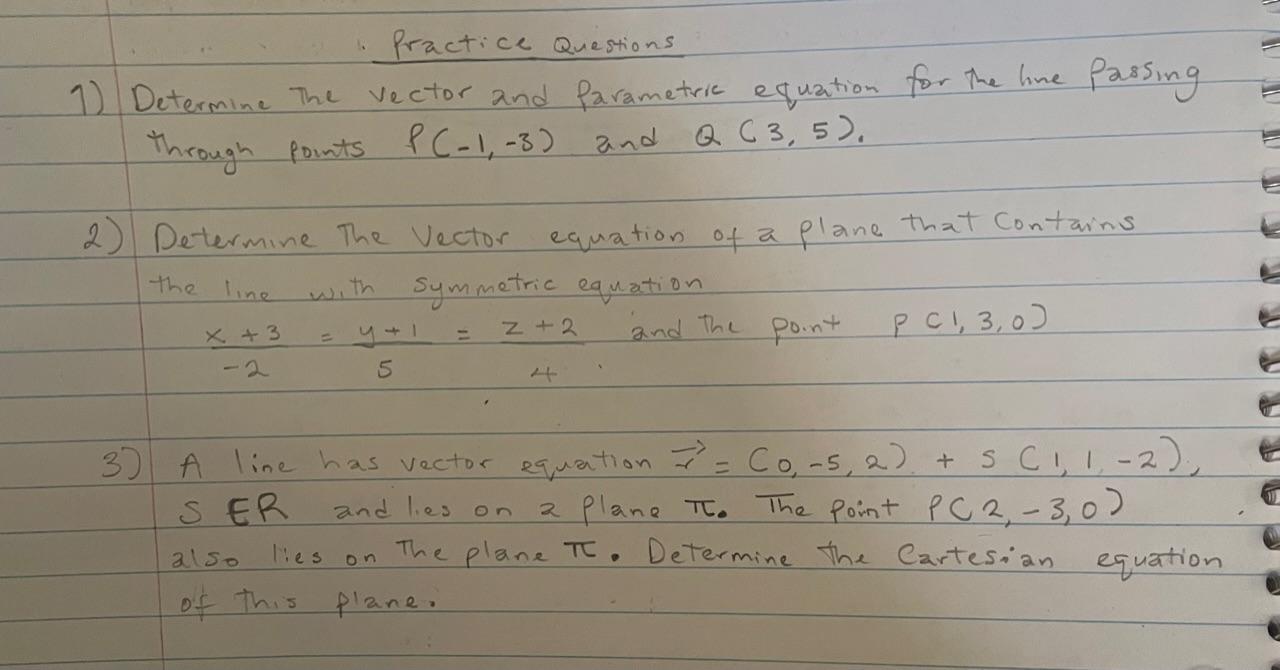 Practice Questions
1) Determine The vector and Parametric equation for the line Passing
through points P(-1,-3) and Q (3, 5).
2) Determine The Vector equation of a plane that Contains
the line with symmetric equation
x + 3 = y + 1 = z + 2 and The point P (1, 3, 0)
-2 5 4
3) A line has vector equation r⃗ = (0, -5, 2) + s (1, 1, -2),
S ∈ R and lies on a plane π. The point P(2, -3, 0)
also lies on The plane π. Determine the Cartesian equation
of this plane.